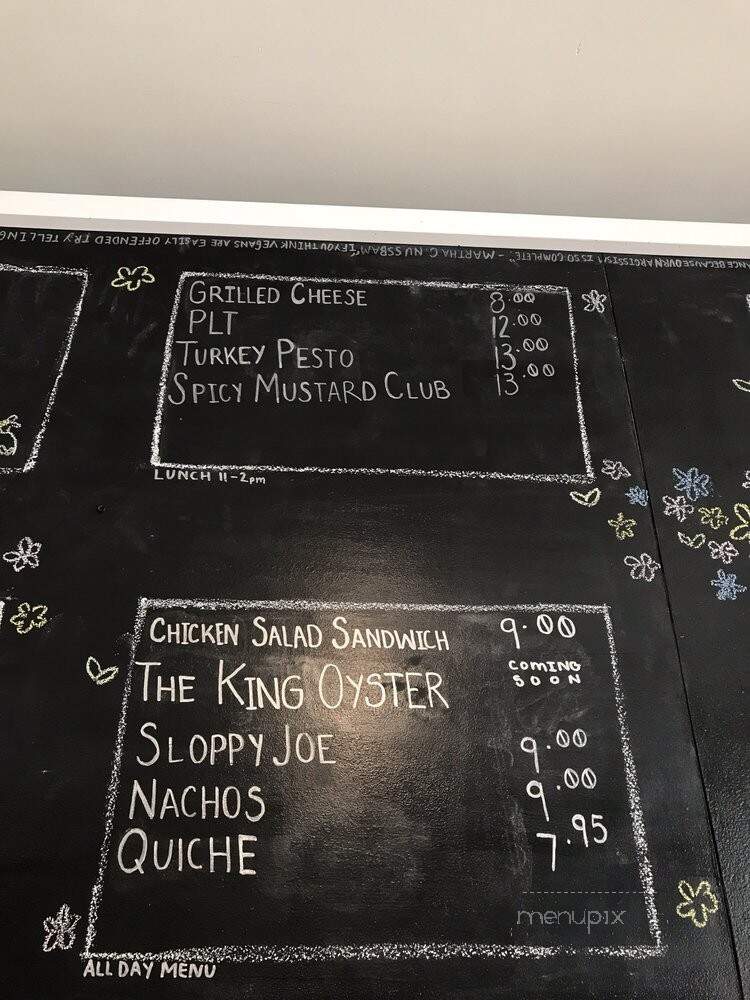 NCE BECAUSE OUR NARCISSISM IS SO COMPLETE." - MARTHA C. NUSSBAUM "IF YOU THINK VEGANS ARE EASILY OFFENDED TRY TELLING
GRILLED CHEESE 8.00
PLT 12.00
TURKEY PESTO 13.00
SPICY MUSTARD CLUB 13.00
LUNCH 11-2pm
CHICKEN SALAD SANDWICH 9.00
THE KING OYSTER COMING SOON
SLOPPY JOE 9.00
NACHOS 9.00
QUICHE 7.95
menupix
ALL DAY MENU